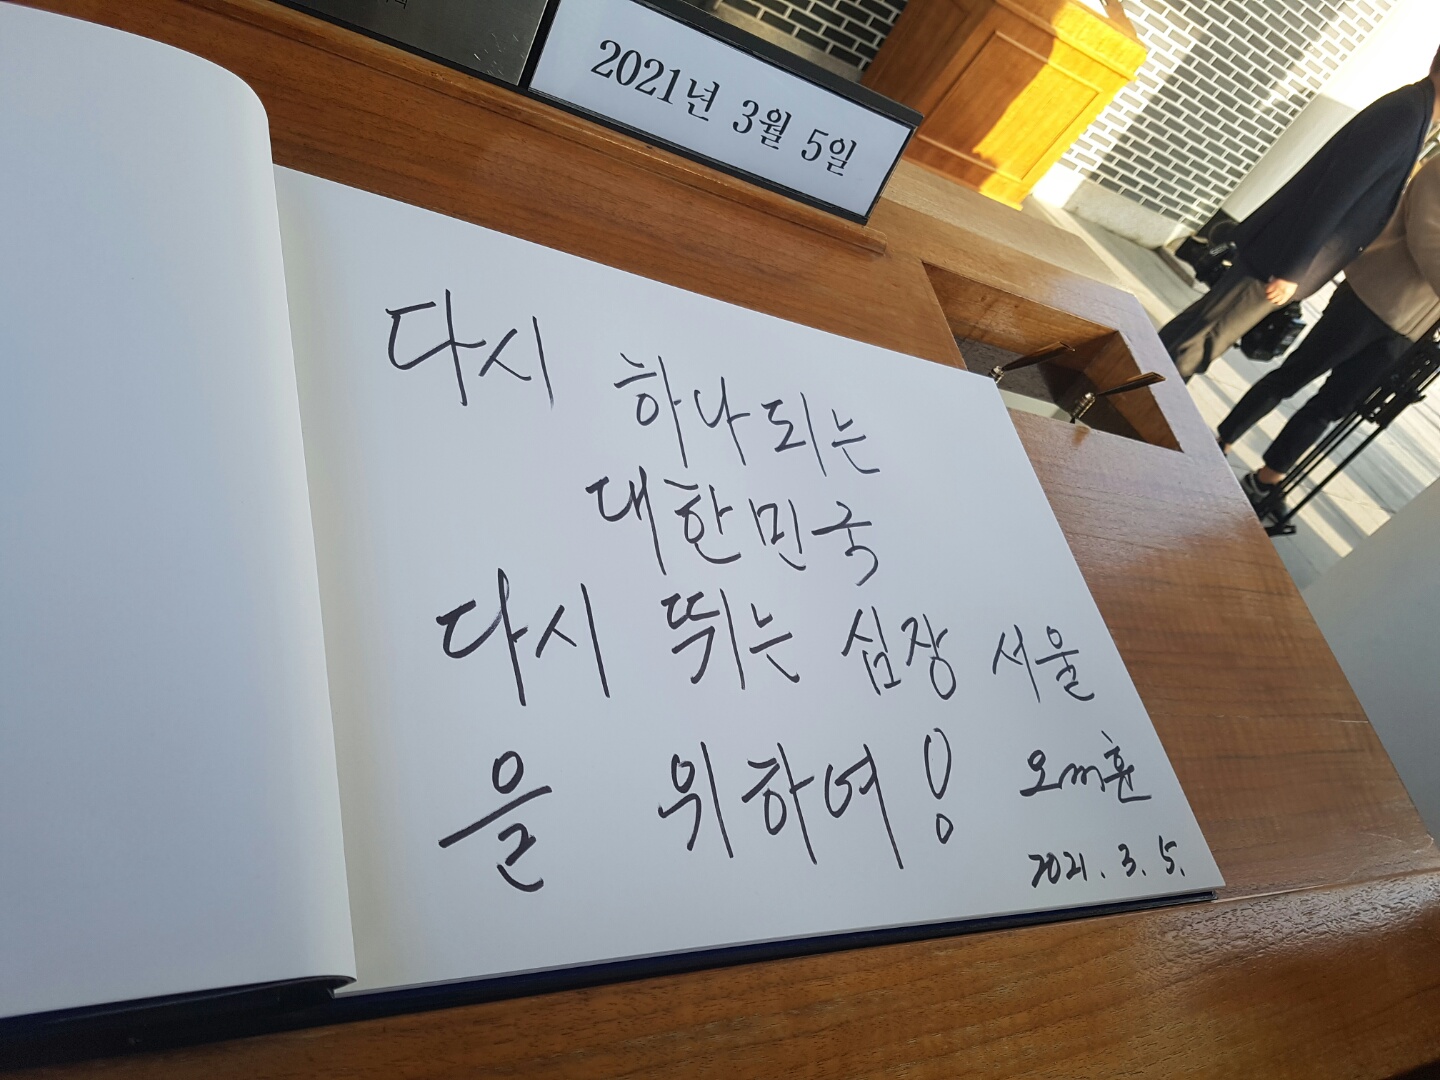 2021년 3월 5일
다시 하나되는
대한민국
다시 뛰는 심장 서울
을 위하여!
오세훈
2021. 3. 5.